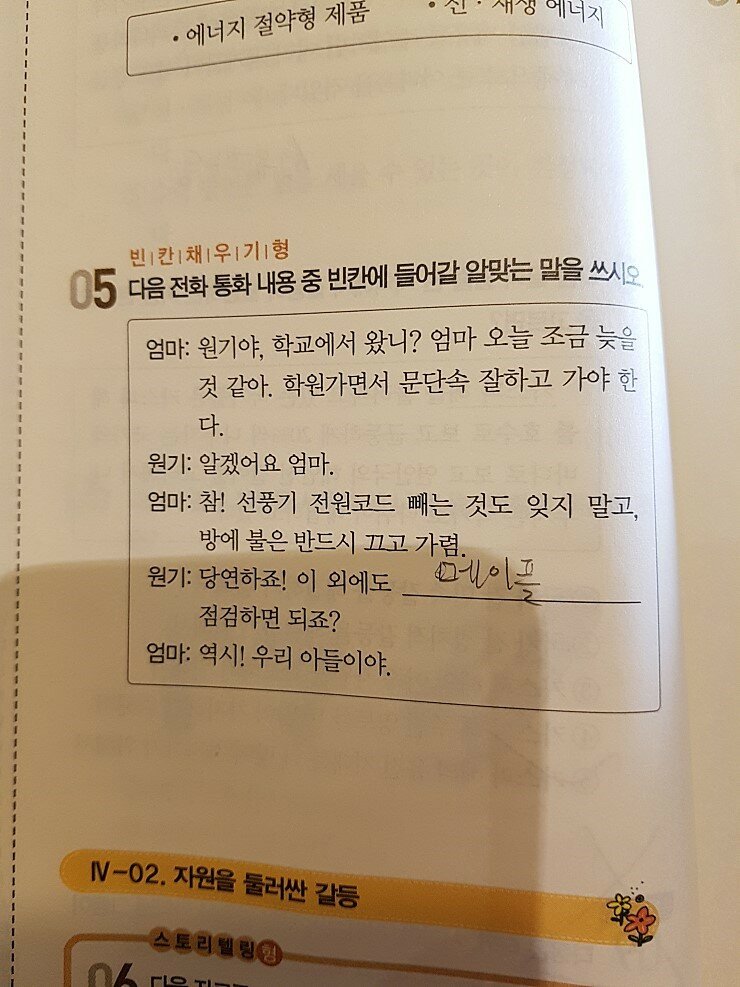 • 에너지 절약형 제품 • 신·재생 에너지
빈|칸|채|우|기|형
05 다음 전화 통화 내용 중 빈칸에 들어갈 알맞는 말을 쓰시오.
엄마: 원기야, 학교에서 왔니? 엄마 오늘 조금 늦을
것 같아. 학원가면서 문단속 잘하고 가야 한
다.
원기: 알겠어요 엄마.
엄마: 참! 선풍기 전원코드 빼는 것도 잊지 말고,
방에 불은 반드시 끄고 가렴.
원기: 당연하죠! 이 외에도 메이플
점검하면 되죠?
엄마: 역시! 우리 아들이야.
Ⅳ-02. 자원을 둘러싼 갈등
스토리텔링형
06 다음